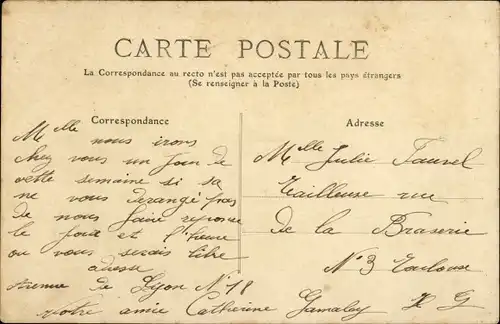 CARTE POSTALE
La Correspondance au recto n'est pas acceptée par tous les pays étrangers
(Se renseigner à la Poste)
Correspondance
Mlle
nous irons
chez vous un jour de
cette semaine si sa
ne vous derange pas
de nous faire reponse
le jour et l'heure
ou vous serais libre
adresse
Avenue de Lyon N° 18
votre amie Catherine Gamaley
Adresse
Mlle Julie Faurel
Tailleuse rue
de la Braserie
N° 3 Toulouse
H G